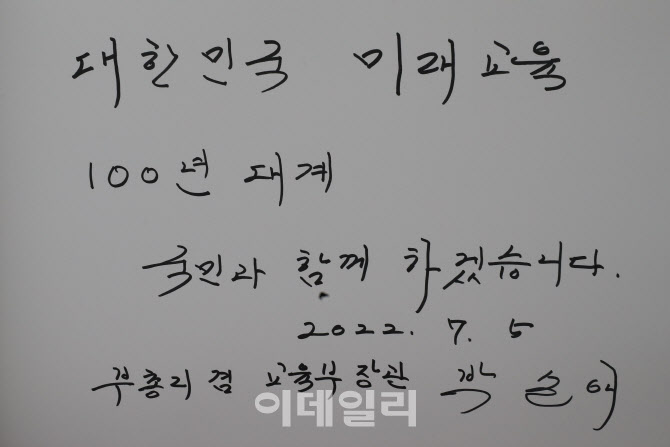 대한민국 미래교육
100년 대계
국민과 함께 하겠습니다.
2022. 7. 5
부총리 겸 교육부 장관 박 순 애
이데일리